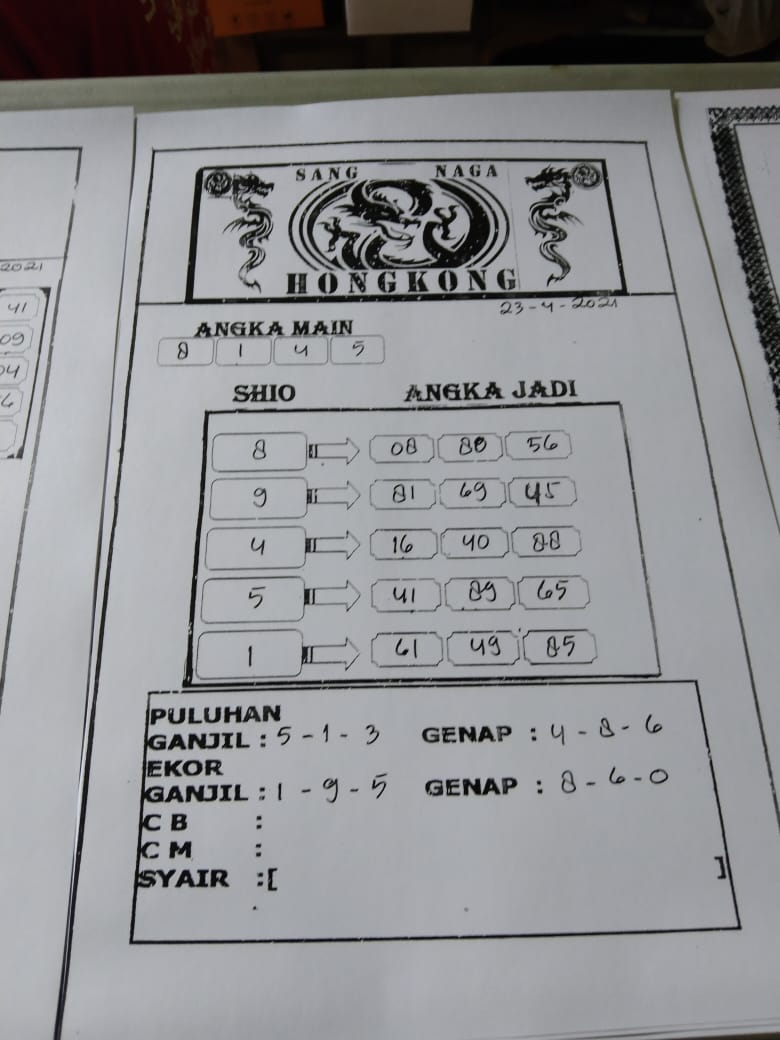 SANG NAGA
HONGKONG
23-4-2021
ANGKA MAIN
8 1 4 5
SHIO ANGKA JADI
8 08 80 56
9 81 69 45
4 16 40 88
5 41 89 65
1 61 49 85
PULUHAN
GANJIL : 5 - 1 - 3 GENAP : 4 - 8 - 6
EKOR
GANJIL : 1 - 9 - 5 GENAP : 8 - 6 - 0
C B :
C M :
SYAIR :[ ]
2021
41
09
04
6